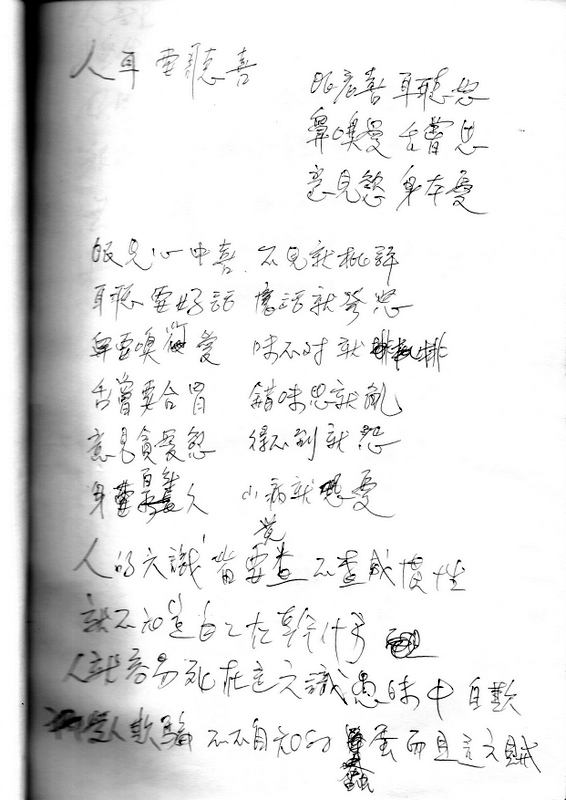 人耳要聽喜
眼底喜 耳聽怒
鼻嗅愛 舌嘗思
意見慾 身本憂
眼見心中喜 不見就批評
耳聽要好話 壞話就發怒
鼻要嗅 愛 味不对就 排
舌嘗要合胃 錯味思就亂
意見貪愛忽 得不到就怨
身 久 小病就 憂
人的六識 皆要查 不查成慣性
覚
就不知道自己在幹什么
人就容易死在這六識愚昧中 自欺
人欺騙 不自知的 蛋 而且這六賊